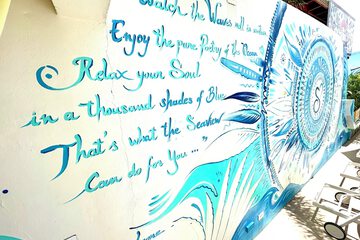 Watch the Waves roll in motion
Enjoy the pure Poetry of the Ocean
Relax your Soul
in a thousand shades of Blue
That's what the Seaview
Can do for You ... "
S